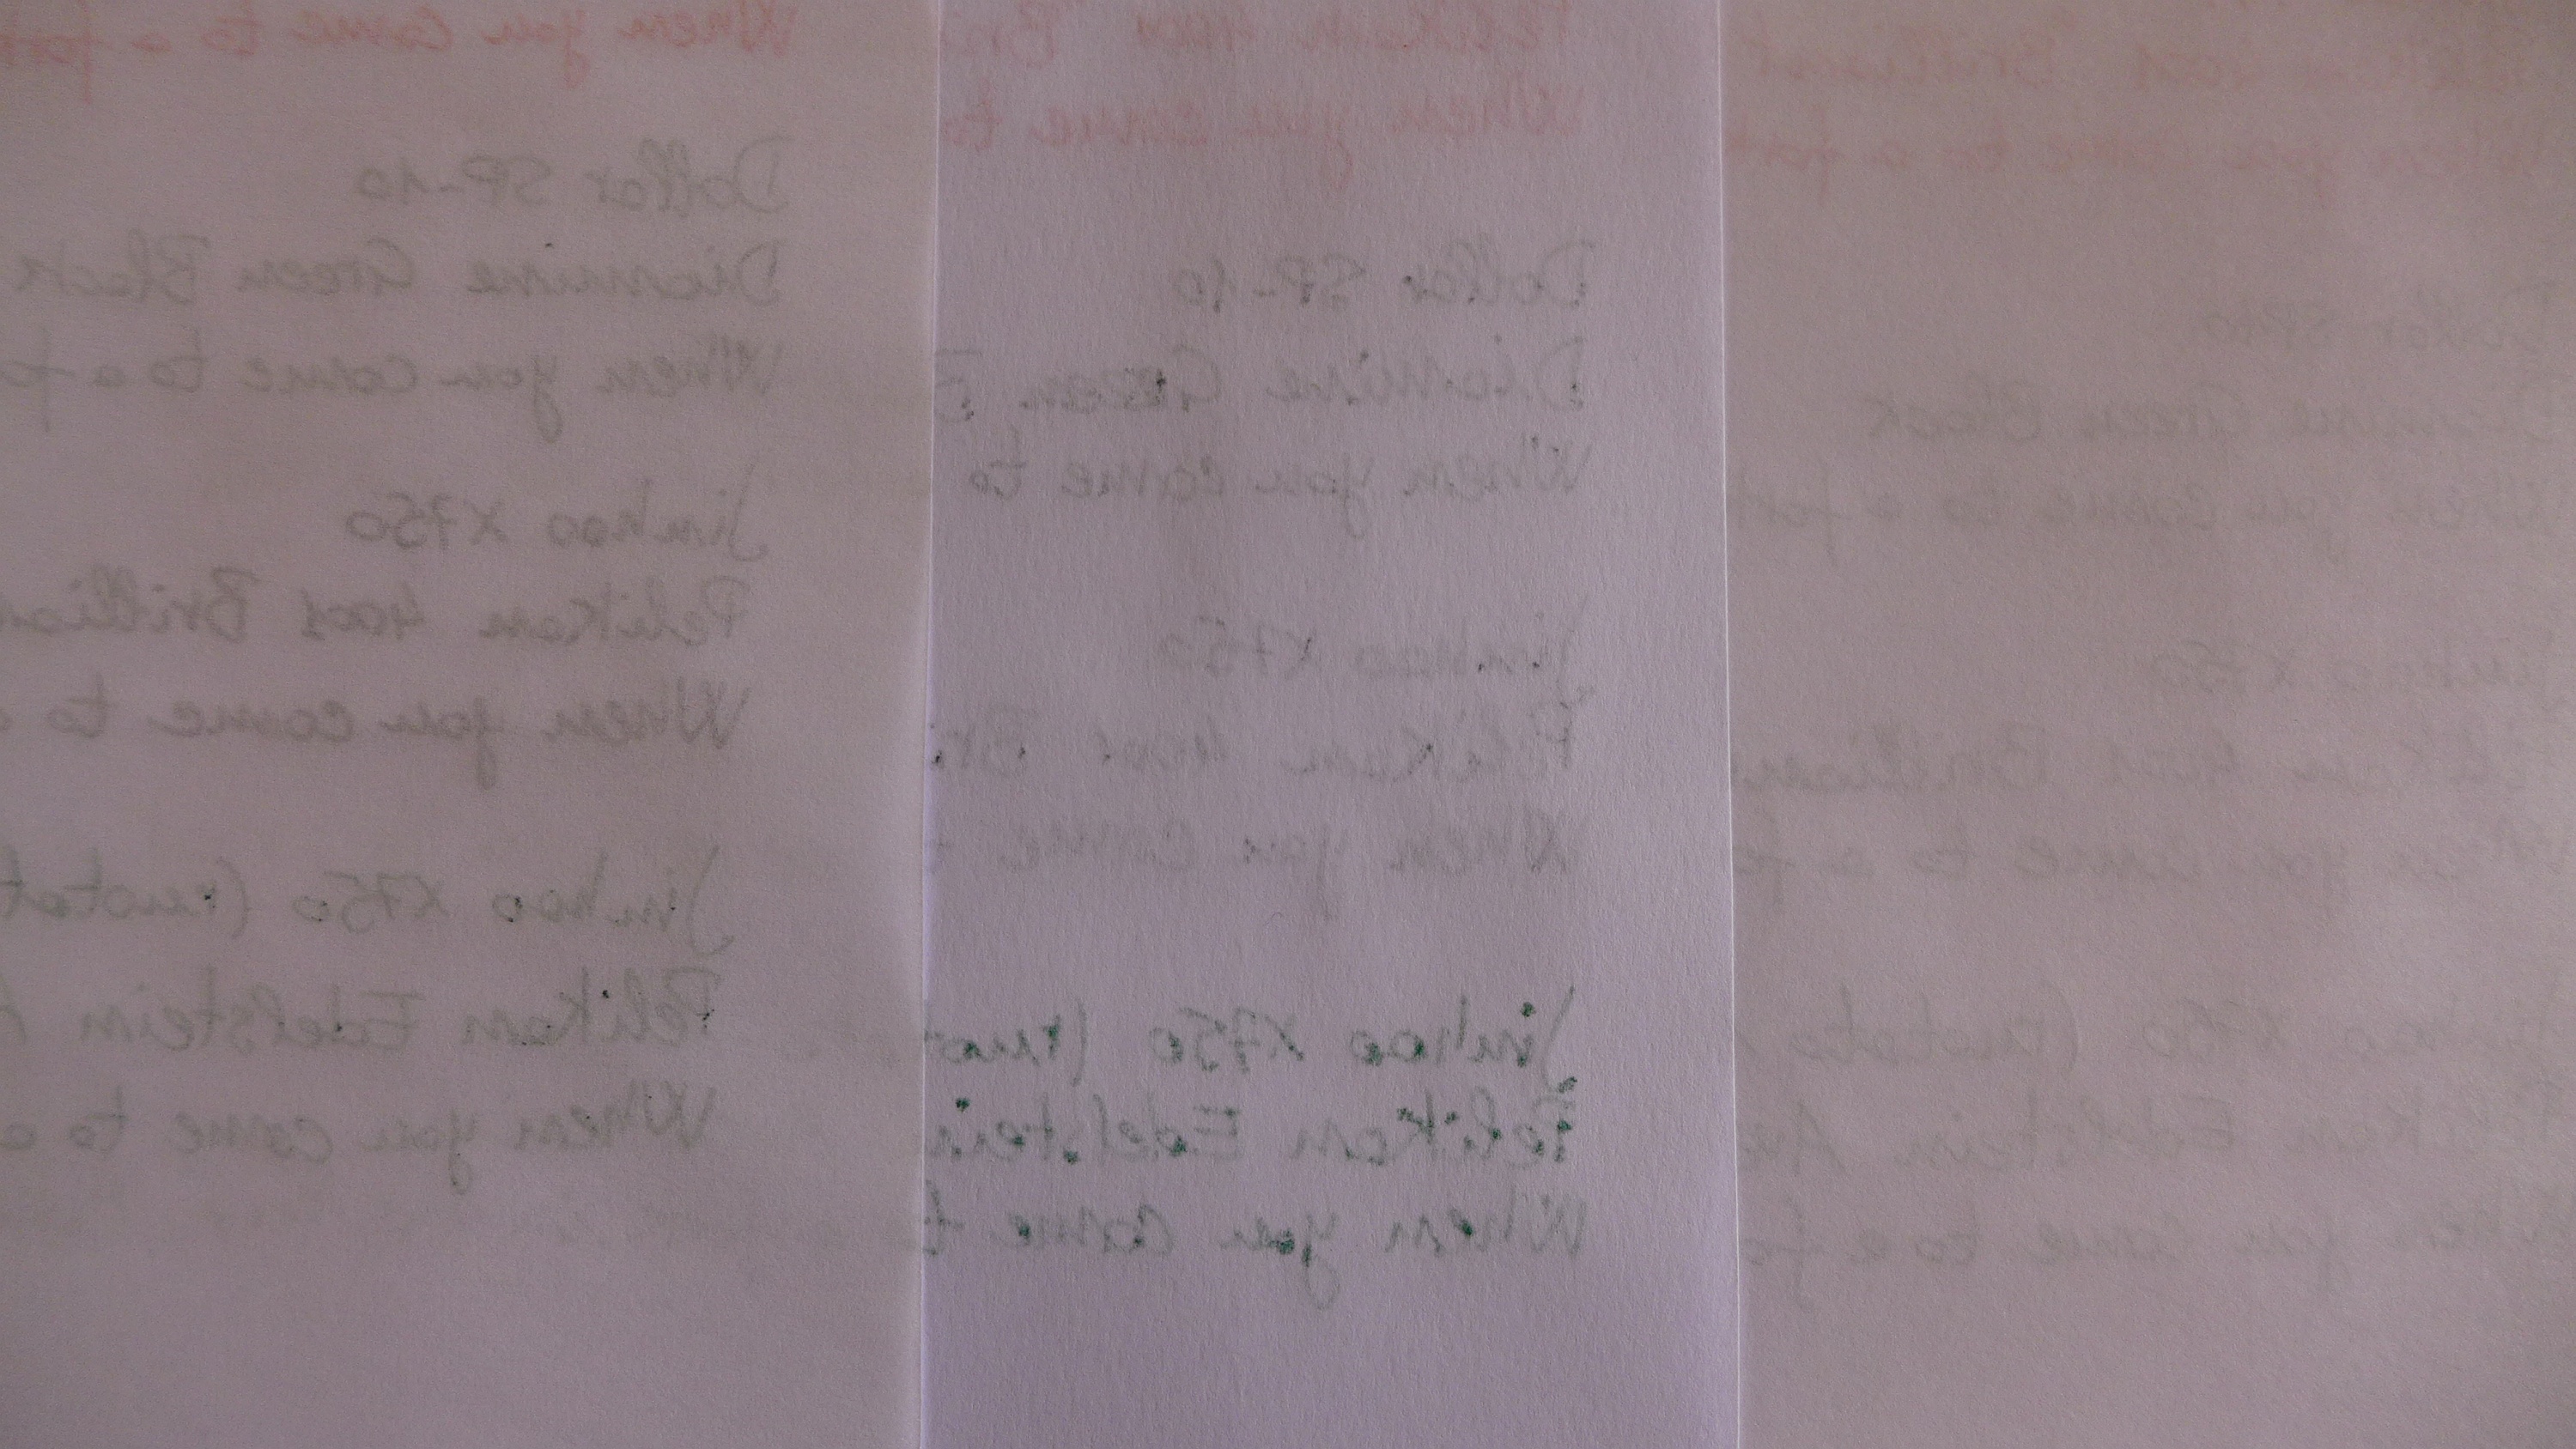 When you come to a fork
Dollar SP-10
Diamine Green Black
When you come to a fo
Jinhao X750
Pelikan 4001 Brillian
When you come to a
Jinhao X750 (ruotat
Pelikan Edelstein A
When you come to a
Pelikan 4001 Bri
When you come to
Dollar SP-10
Diamine Green B
When you come to
Jinhao X750
Pelikan 4001 Bri
When you come t
Jinhao X750 (ruo
Pelikan Edelstein
When you come t
4001 Brilliant
you come to a fork
Dollar SP-10
Diamine Green Black
When you come to a fork
Jinhao X750
Pelikan 4001 Brillian
When you come to a fo
Jinhao X750 (ruotato
Pelikan Edelstein Av
When you come to a fo